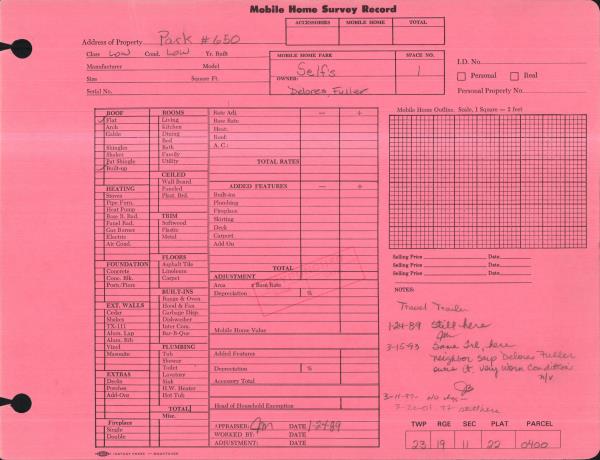 Mobile Home Survey Record
ACCESSORIES MOBILE HOME TOTAL
Address of Property Park #650
Class Low Cond. Low Yr. Built
Manufacturer Model
Size Square Ft.
Serial No.
MOBILE HOME PARK SPACE NO.
Self's 1
OWNER:
Delores, Fuller
I.D. No.
Personal Real
Personal Property No.
ROOF
Flat
Arch
Gable
Shingles
Shakes
Pat Shingle
Built-up
HEATING
Stoves
Pipe Furn.
Heat Pump
Base B. Rad.
Panel Rad.
Gas Burner
Electric
Air Cond.
FOUNDATION
Concrete
Conc. Blk.
Posts/Piers
EXT. WALLS
Cedar
Shakes
TX-111
Alum. Lap
Alum. Rib
Vinyl
Masonite
EXTRAS
Decks
Porches
Add-Ons
Fireplace
Single
Double
ROOMS
Living
Kitchen
Dining
Bed
Bath
Family
Utility
CEILED
Wall Board
Paneled
Plast. Brd.
TRIM
Softwood
Plastic
Metal
FLOORS
Asphalt Tile
Linoleum
Carpet
BUILT-INS
Range & Oven
Hood & Fan
Garbage Disp.
Dishwasher
Inter Com.
Bar-B-Que
PLUMBING
Tub
Shower
Toilet
Lavatory
Sink
H.W. Heater
Hot Tub
TOTAL
Misc.
Rate Adj. — +
Base Rate
Heat:
Roof:
A. C.:
TOTAL RATES
ADDED FEATURES — +
Built-ins
Plumbing
Fireplace
Skirting
Deck
Carport
Add On
TOTAL
ADJUSTMENT
Area x Base Rate
Depreciation %
Mobile Home Value
Added Features
Depreciation %
Accessory Total
Head of Household Exemption
APPRAISER: Jm DATE 1-24-89
WORKED BY: DATE
ADJUSTMENT: DATE
Mobile Home Outline. Scale, 1 Square — 2 feet
Selling Price Date
Selling Price Date
Selling Price Date
NOTES:
Travel Trailer
1-24-89 Still here
Jm
3-15-93 Same Trl, here
Neighbor says Delores Fuller
owns it, very worn condition
n/v
3-11-97- No chg -
still here
TWP RGE SEC PLAT PARCEL
23 19 11 22 0400